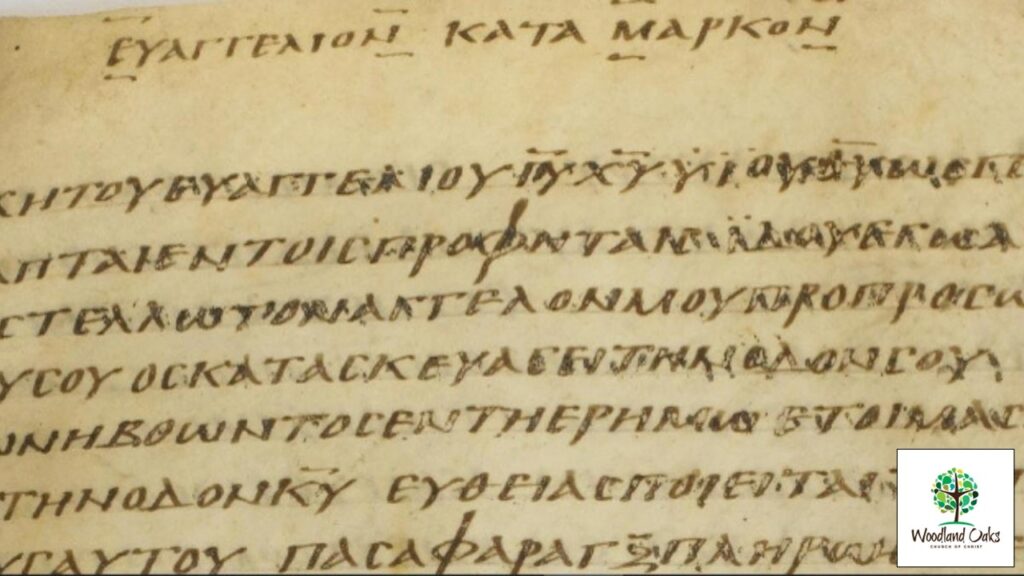 ΕΥΑΓΓΕΛΙΟΝ ΚΑΤΑ ΜΑΡΚΟΝ
ΧΗΤΟΥΕΥΑΓΓΕΛΙΟΥΙ̅Υ̅Χ̅Υ̅ΥΙΟΥΘ̅Υ̅ΩϹΓΕ
ΑΠΤΑΙΕΝΤΟΙϹΠΡΟΦΗΤΑΙϹΪΔΟΥΕΓΩΑ
ϹΤΕΛΛΩΤΟΝΑΓΓΕΛΟΝΜΟΥΠΡΟΠΡΟϹΩ
ΥϹΟΥΟϹΚΑΤΑϹΚΕΥΑϹΕΙΤΗΝΟΔΟΝϹΟΥ
ΩΝΗΒΟΩΝΤΟϹΕΝΤΗΕΡΗΜΩΕΤΟΙΜΑϹ
ΤΗΝΟΔΟΝΚ̅Υ̅ ΕΥΘΕΙΑϹΠΟΙΕΙΤΑΙ
ΥϹΑΥΤΟΥ ΠΑϹΑΦΑΡΑΓΞΠΛΗΡΩ
Woodland Oaks
CHURCH OF CHRIST